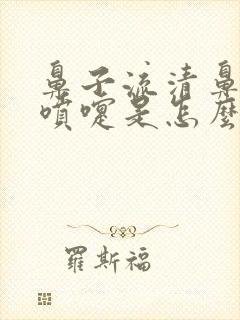 鼻子流清鼻
噴嚏是怎麼
羅斯福